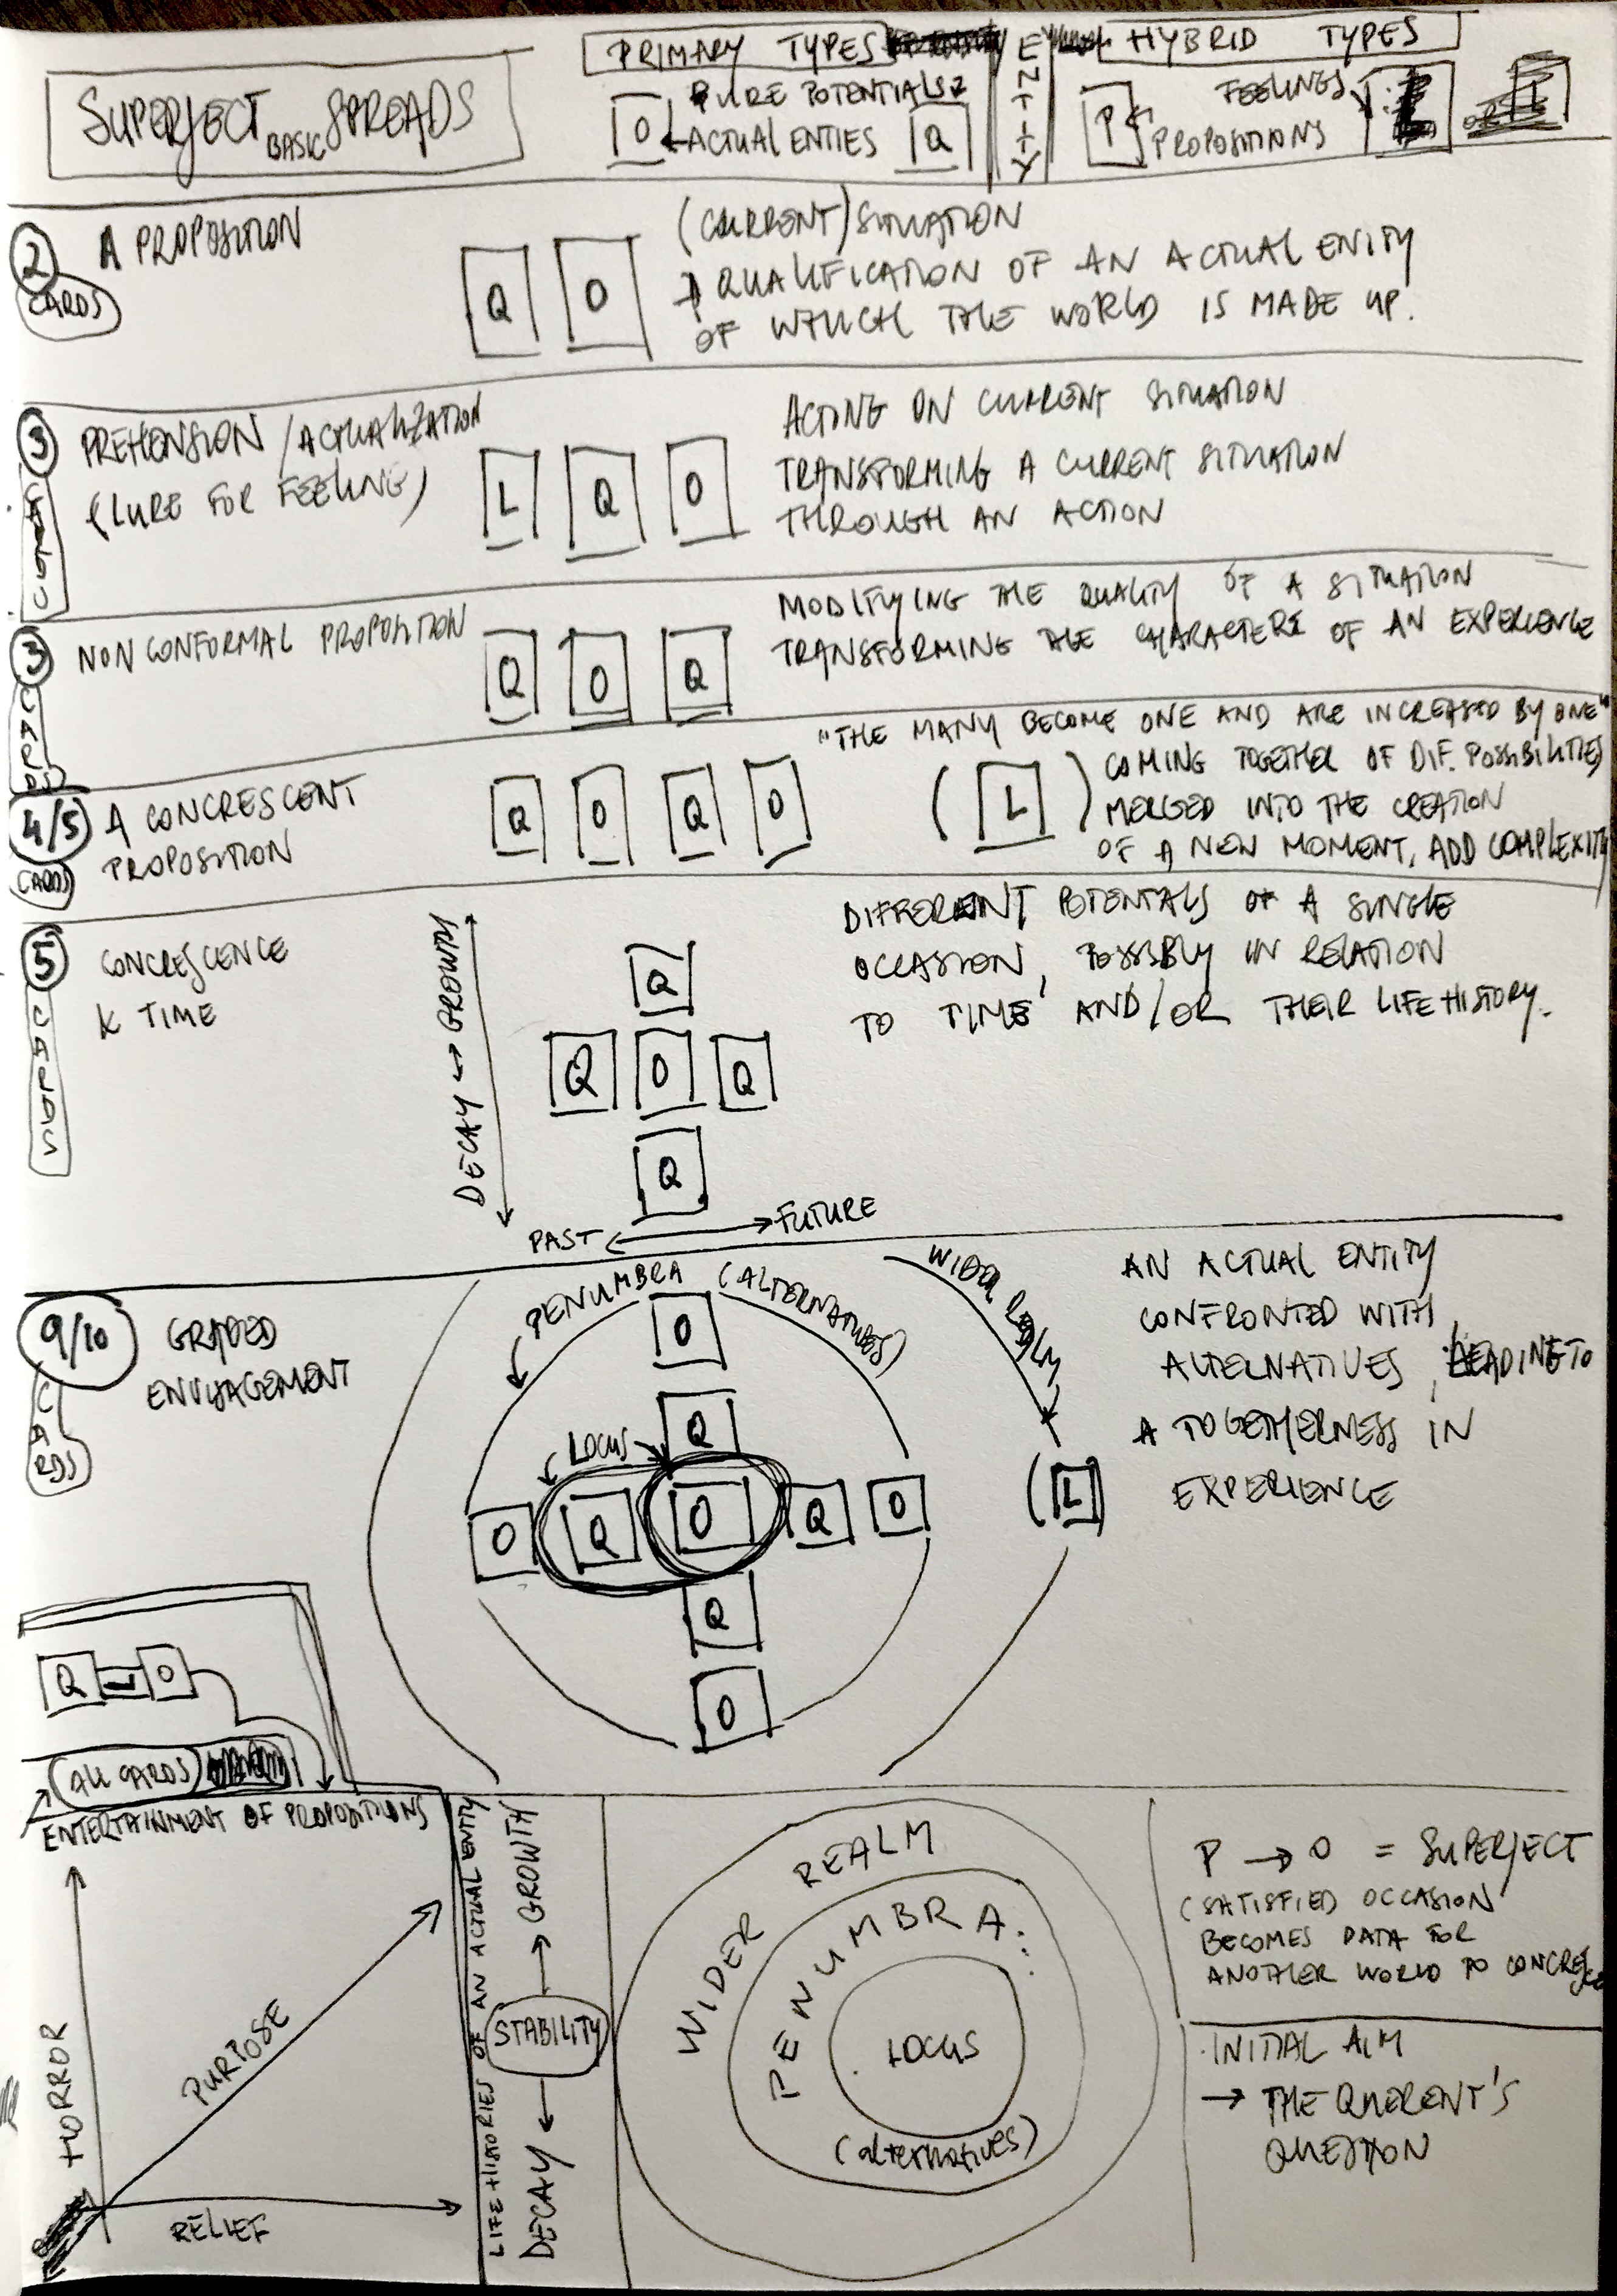 SUPERJECT BASIC SPREADS
PRIMARY TYPES
PURE POTENTIALS
O ACTUAL ENTIES Q
ENTITY
HYBRID TYPES
FEELINGS L
P PROPOSITIONS
OR
2 CARDS
A PROPOSITION
Q O
(CURRENT) SITUATION
QUALIFICATION OF AN ACTUAL ENTITY
OF WHICH THE WORLD IS MADE UP.
3 CARDS
PREHENSION / ACTUALIZATION
(LURE FOR FEELING)
L Q O
ACTING ON CURRENT SITUATION
TRANSFORMING A CURRENT SITUATION
THROUGH AN ACTION
3 CARDS
NON CONFORMAL PROPOSITION
Q O Q
MODIFYING THE QUALITY OF A SITUATION
TRANSFORMING THE CHARACTER OF AN EXPERIENCE
4/5 CARDS
A CONCRESCENT
PROPOSITION
Q O Q O (L)
"THE MANY BECOME ONE AND ARE INCREASED BY ONE"
COMING TOGETHER OF DIF. POSSIBILITIES
MERGED INTO THE CREATION
OF A NEW MOMENT, ADD COMPLEXITY
5 CARDS
CONCRESCENCE
& TIME
DECAY ↔ GROWTH
Q
Q O Q
Q
PAST ↔ FUTURE
DIFFERENT POTENTALS OF A SINGLE
OCCASION, POSSIBLY IN RELATION
TO TIME AND/OR THEIR LIFE HISTORY.
9/10 CARDS
GRADED
ENVISAGEMENT
PENUMBRA (ALTERNATIVES)
WIDER REALM
O
Q
LOCUS
O Q O Q O
(L)
Q
O
AN ACTUAL ENTITY
CONFRONTED WITH
ALTERNATIVES, LEADING TO
A TOGETHERNESS IN
EXPERIENCE
Q O
(ALL CARDS)
ENTERTAINMENT OF PROPOSITIONS
HORROR
PURPOSE
RELIEF
LIFE HISTORIES OF AN ACTUAL ENTITY
DECAY ← STABILITY → GROWTH
WIDER REALM
PENUMBRA
LOCUS
(alternatives)
P → O = SUPERJECT
(SATISFIED OCCASION
BECOMES DATA FOR
ANOTHER WORLD TO CONCRESCE
INITIAL AIM
→ THE QUERENT'S
QUESTION